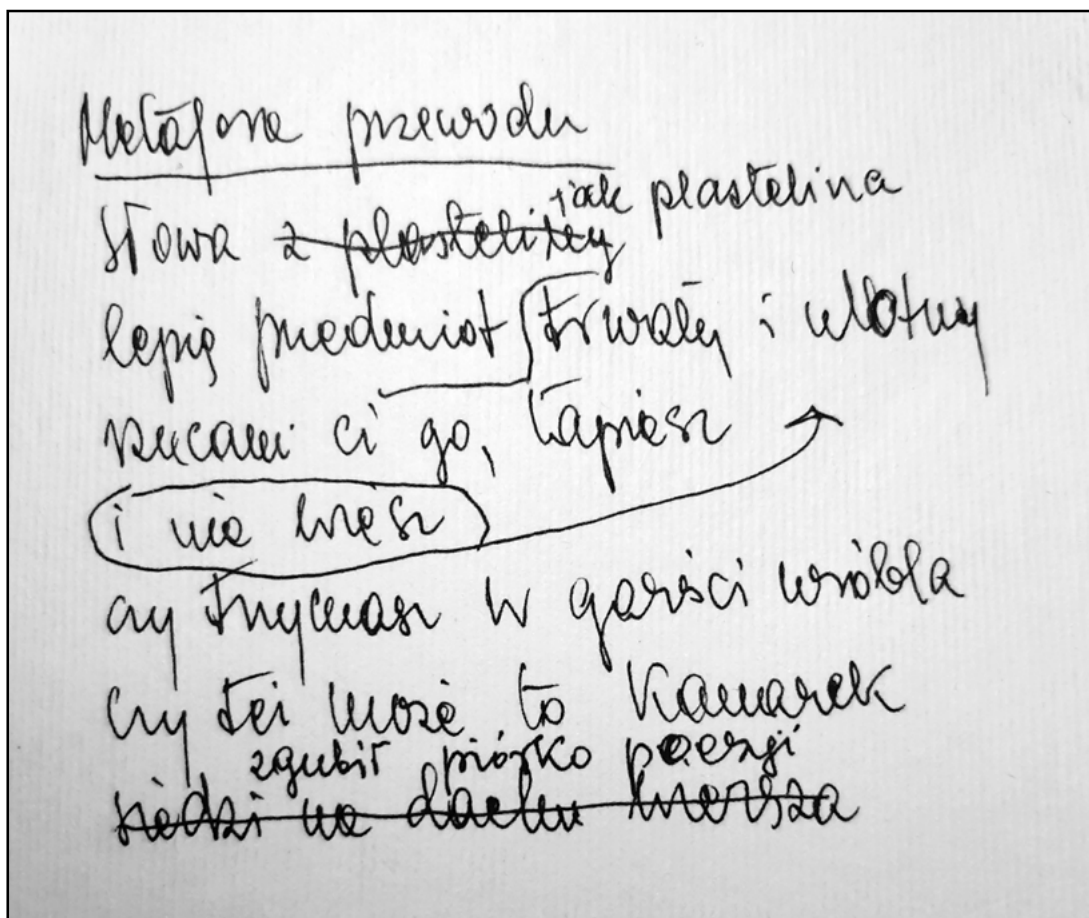 Metafora przewodu
Słowa z plasteliny jak plastelina
lepię przedmiot trwały i ulotny
rzucam ci go, łapiesz
i nie wiesz
czy trzymasz w garści wróbla
czy też może to kanarek
zgubił piórko poezji
siedzi na dachu wiersza